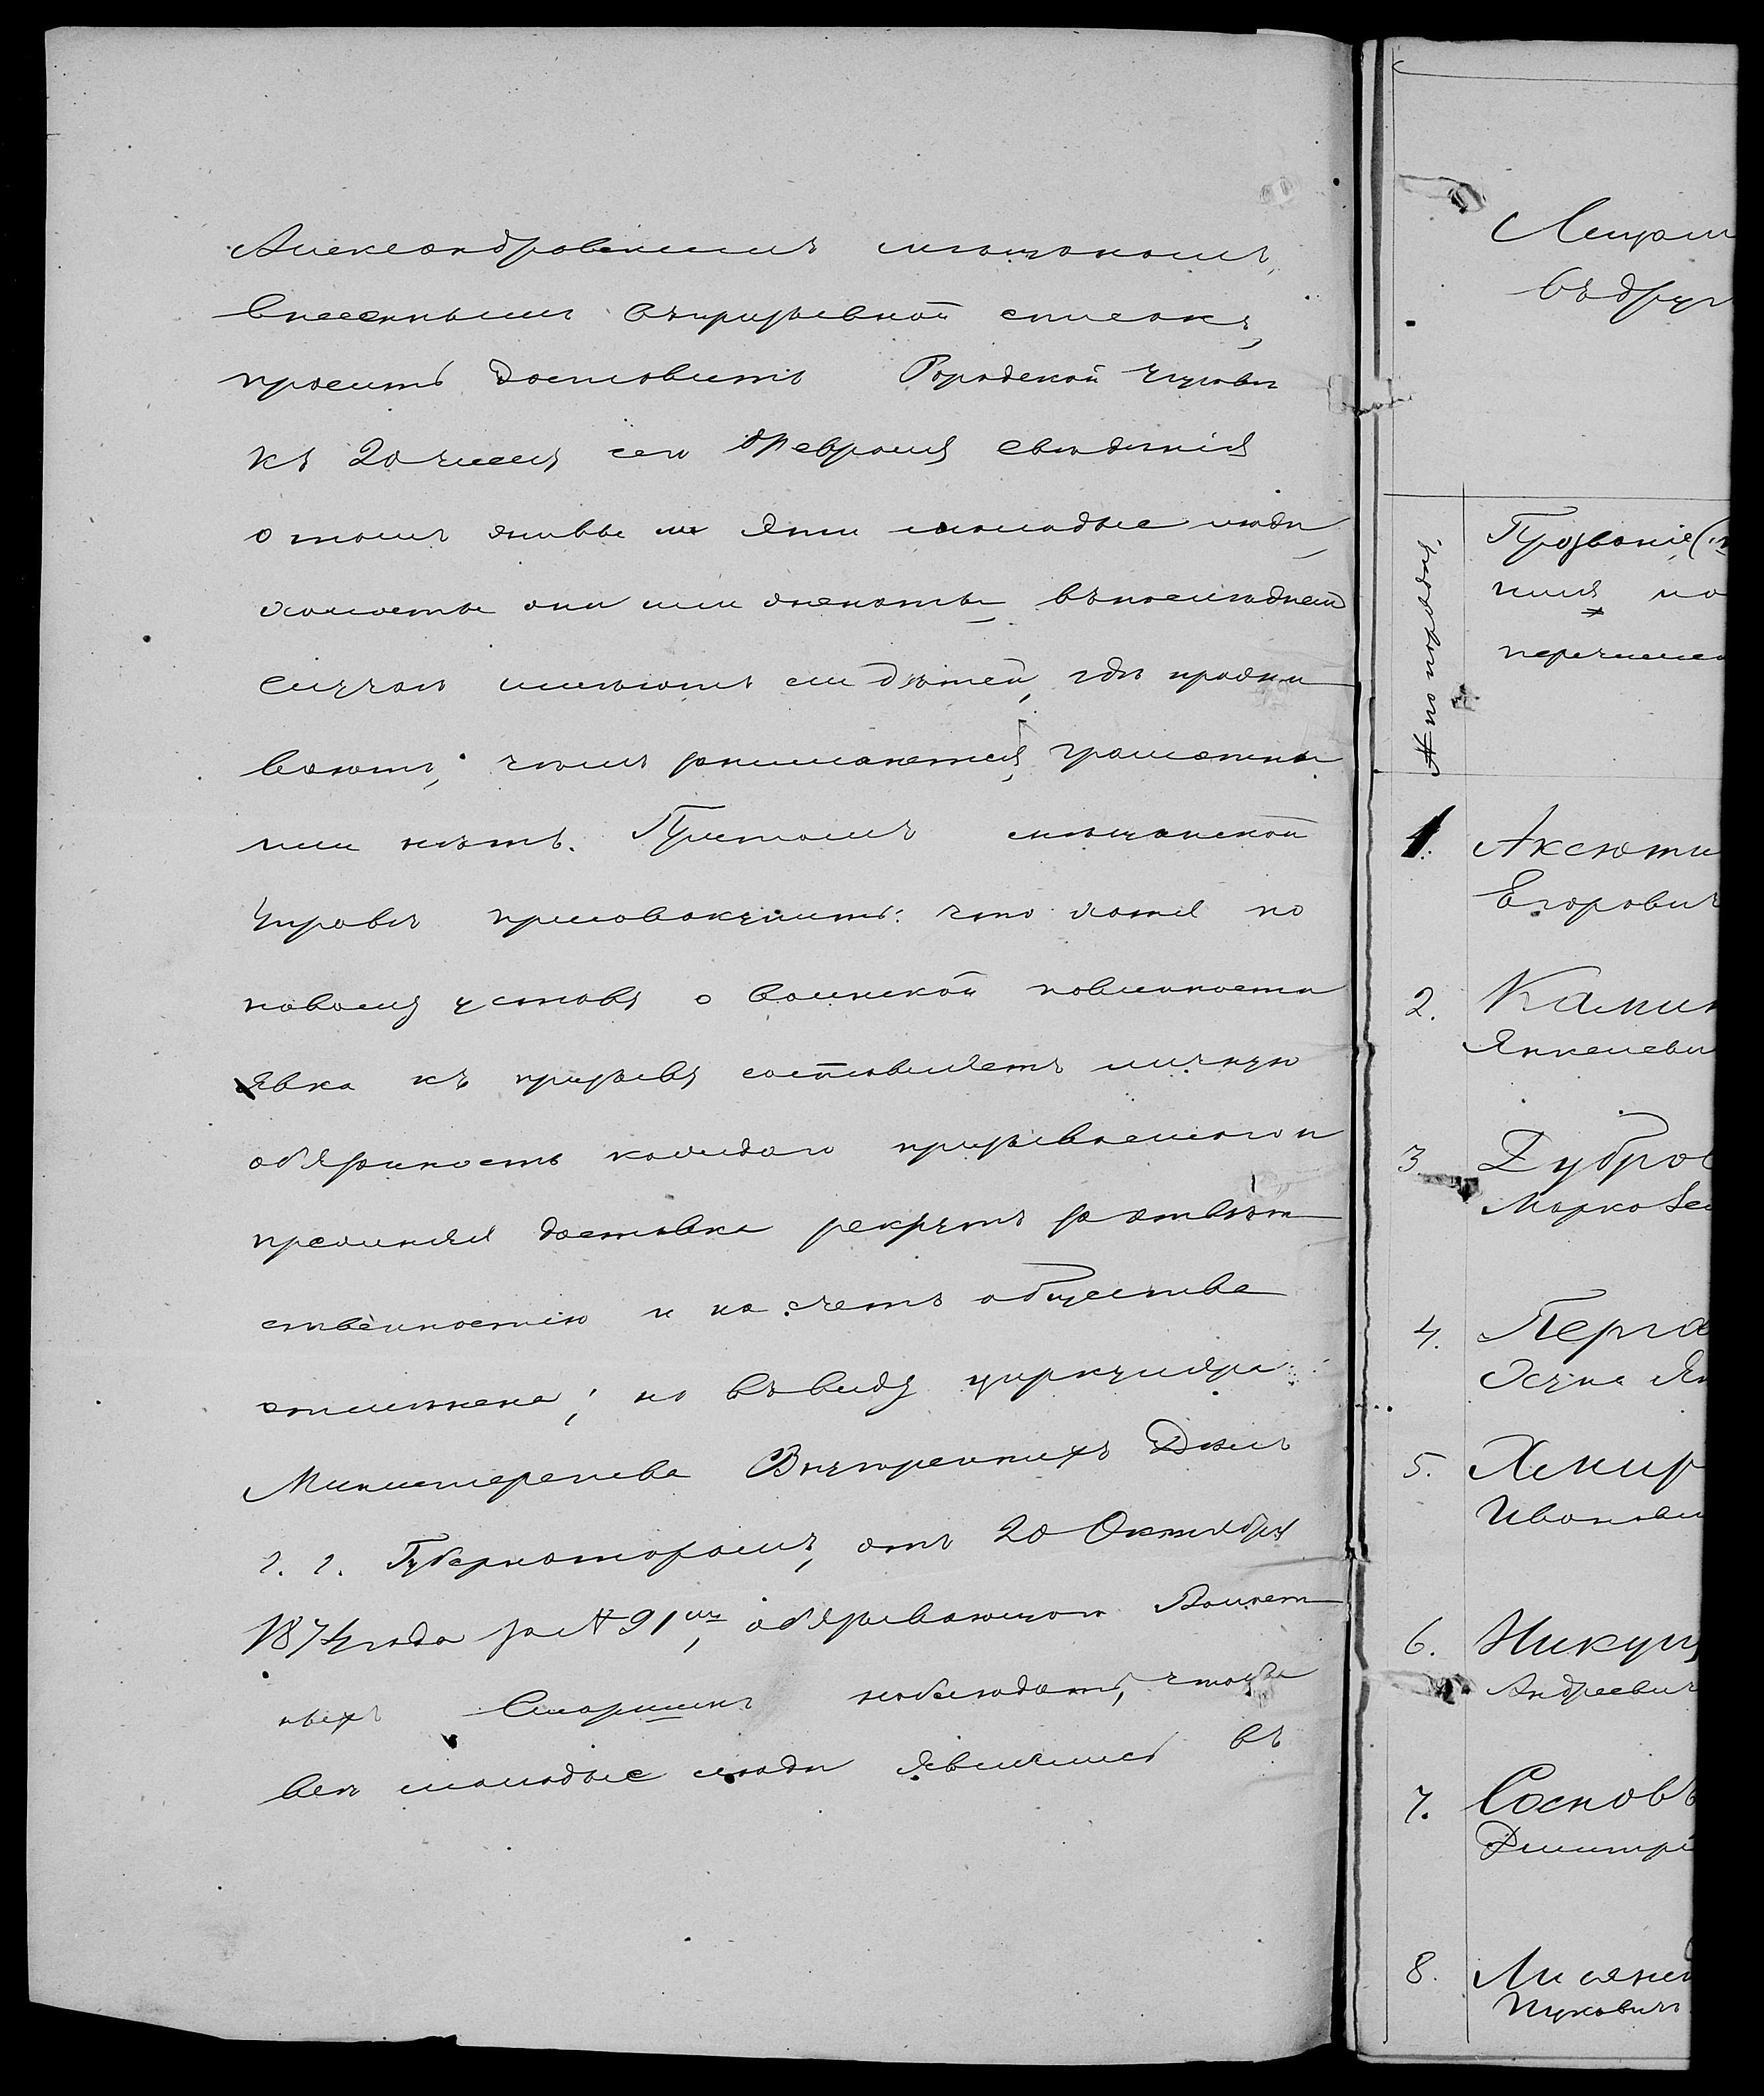 Александровскимъ мѣщанамъ,
внесеннымъ въ призывной списокъ,
проситъ доставить Городской Управѣ
къ 20 числу сего Февраля свѣдѣнія
о томъ живы ли эти молодые люди,
холосты они или женаты, въ послѣднемъ
случаѣ имѣютъ ли дѣтей, гдѣ прожи
ваютъ, чѣмъ занимаются, грамотны
или нѣтъ. При томъ мѣщанской
Управѣ присовокупить: что хотя по
новому уставу о воинской повинности
явка къ призыву составляетъ личную
обязаность каждаго призываемаго и
прежняя доставка рекрутъ за отвѣт
ственностію и на счетъ общества
отмѣнена; но въ виду циркуляра
Министерства Внутреннихъ Дѣлъ
г. г. Губернаторамъ, отъ 20 Октября
1874 года за № 91мъ, обязывающаго Волост
ныхъ Старшинъ наблюдать, чтобы
всѣ молодые люди явились въ
въ друг
№ по порядку.
Прозваніе (
имя
перечислен
1. Аксюти
Егорович
2. Камин
Янкелеви
3 Дубров
Марко
4. Перга
Осипъ Ян
5. Хмир
Иванови
6. Никущ
Андреевич
7. Сосновъ
Дмитрі
8.